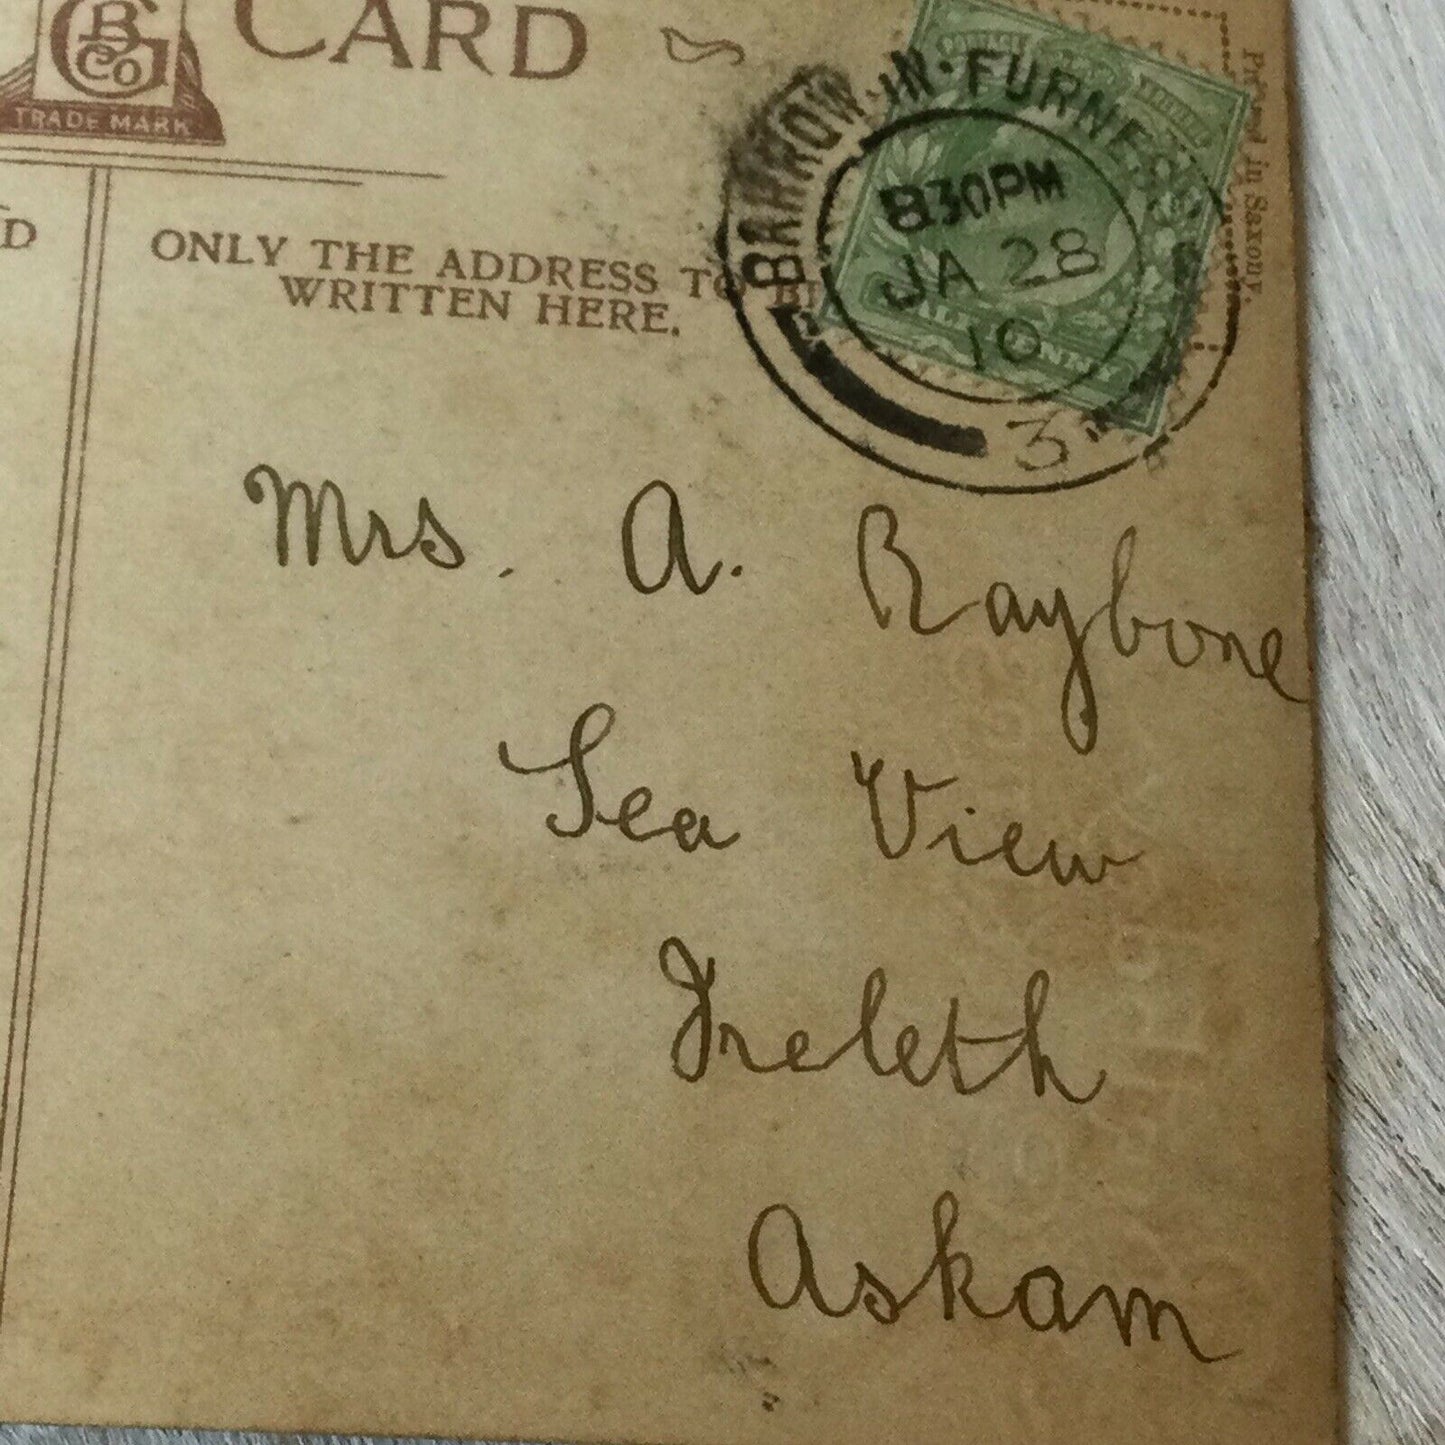 CARD
BGCO
TRADE MARK
D
ONLY THE ADDRESS TO BE
WRITTEN HERE.
BARROW-IN-FURNESS
830PM
JA 28
10
3
HALFPENNY
Printed in Saxony.
Mrs. A. Raybone
Sea View
Ireleth
Askam